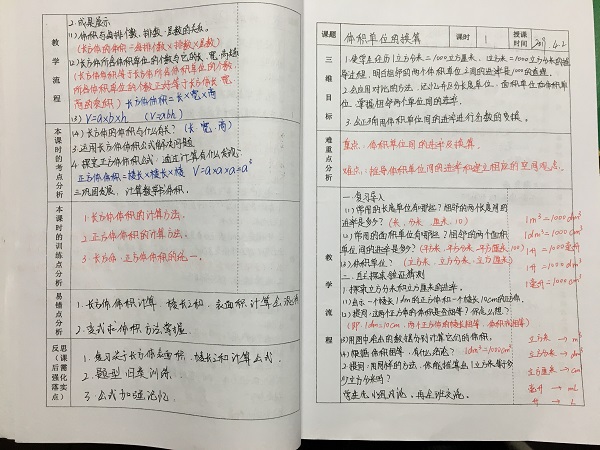 教学流程
2.成果展示
(1)体积与每排个数、排数、层数的关系。
(长方体的体积=每排个数×排数×层数)
(2)长方体所含体积单位的个数与它的长、宽、高
(长方体体积等于长方体所含体积单位的个数,
所含体积单位的个数正好等于长方体长、宽、
高的乘积) 长方体体积=长×宽×高
(3) V=a×b×h (V=abh)
本课时的考点分析
(4)长方体的体积与什么有关?(长、宽、高)
3.运用长方体体积公式解决问题
4.探究正方体体积公式:通过计算有什么发现
正方体体积=棱长×棱长×棱长 V=a×a×a=a³
三.巩固发展:计算数学书体积。
本课时的训练点分析
1.长方体体积的计算方法。
2.正方体体积的计算方法。
3.长方体、正方体体积的统一。
易错点分析
1.长方体体积计算,棱长之和,表面积计算会混淆
2.变式求体积方法掌握
反思(课后需强化落实点)
1.复习关于长方体表面积、棱长之和计算公式。
2.题型归类训练
3.公式加强记忆
课题 体积单位的换算 课时 1 授课时间 2019.4.2
三维目标
1.使学生经历1立方分米=1000立方厘米,1立方米=1000立方分米的推
导过程,明白相邻的两个体积单位之间的进率是1000的道理。
2.会应用对比的方法,记忆并区分长度单位、面积单位和体积单
位,掌握相邻两个单位间的进率。
3.会正确用体积单位间的进率进行名数的变换。
难重点分析
重点:体积单位间的进率及换算。
难点:推导体积单位间的进率和建立相应的空间观念。
教学流程
一.复习导入
(1)常用的长度单位有哪些?相邻的两个长度间的
进率是多少?(米、分米、厘米、10)
(2)常用的面积单位有哪些?相邻的两个面积单
位间的进率是多少?(平方米、平方分米、平方厘米、100)
(3)体积单位?(立方米、立方分米、立方厘米)
二.自主探索、验证猜测
1.探索立方分米和立方厘米的进率。
(1)出示一个棱长1dm的正方体和一个棱长10cm的正方体。
(2)提问:这两个正方体的体积是否相等?你怎么想?
(即1dm=10cm,两个正方体的棱长相等,体积就相等)
(3)用图中给出的数据分别计算它们的体积。
(4)根据体积相等,有什么结论?1dm³=1000cm³
2.提问:用同样的方法,你能推算出1立方米等于多
少立方分米吗?
学生先小组讨论,再全班交流。
1m³=1000dm³
1dm³=1000cm³
1升=1000毫升
1升=1000dm³
1毫升=1000dm³
立方米→m³
立方分米→dm³
立方厘米→cm³
毫升→mL
升→L